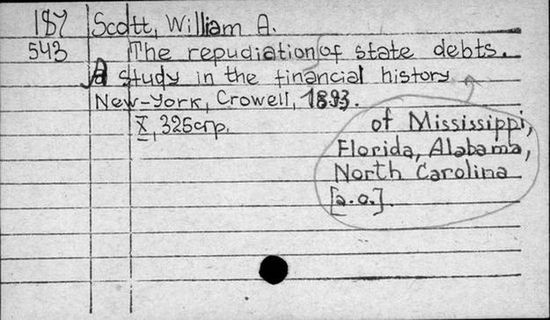 187 Scott, William A.
543 The repudiation of state debts.
A study in the financial history
New-York, Crowell, 1893.
X, 325
of Mississippi,
Florida, Alabama,
North Carolina
[a.o.].